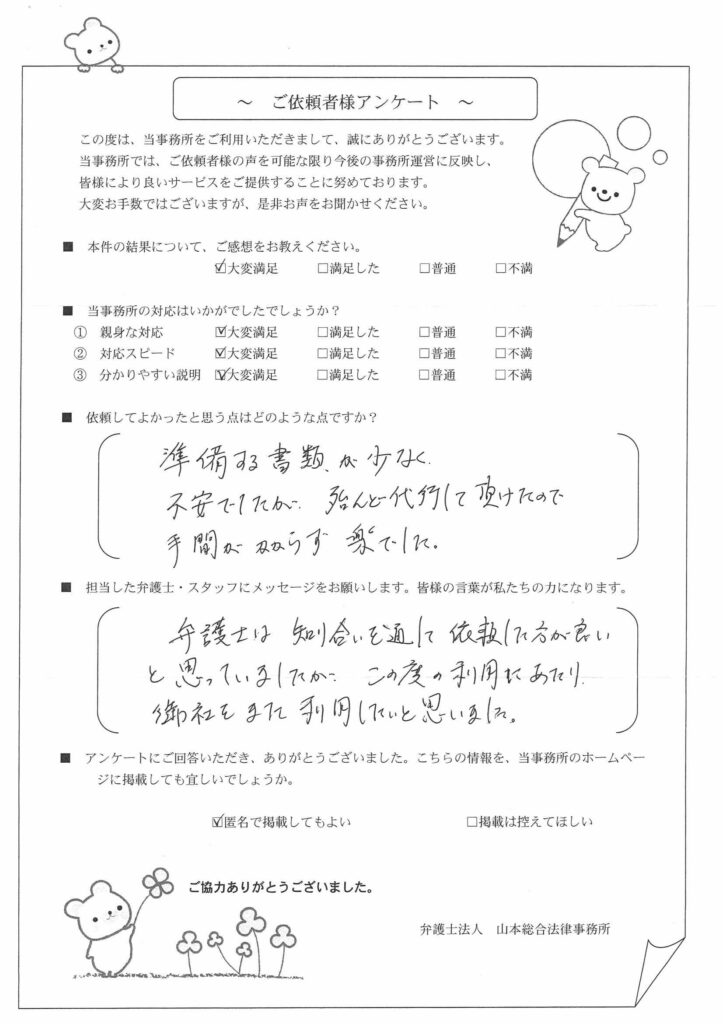 ～ ご依頼者様アンケート ～
この度は、当事務所をご利用いただきまして、誠にありがとうございます。
当事務所では、ご依頼者様の声を可能な限り今後の事務所運営に反映し、
皆様により良いサービスをご提供することに努めております。
大変お手数ではございますが、是非お声をお聞かせください。
■ 本件の結果について、ご感想をお教えください。
☑大変満足 □満足した □普通 □不満
■ 当事務所の対応はいかがでしたでしょうか？
① 親身な対応 ☑大変満足 □満足した □普通 □不満
② 対応スピード ☑大変満足 □満足した □普通 □不満
③ 分かりやすい説明 ☑大変満足 □満足した □普通 □不満
■ 依頼してよかったと思う点はどのような点ですか？
準備する書類が少なく、
不安でしたが、殆んど代行して頂けたので
手間がかからず楽でした。
■ 担当した弁護士・スタッフにメッセージをお願いします。皆様の言葉が私たちの力になります。
弁護士は知り合いを通して依頼した方が良い
と思っていましたが、この度の利用にあたり、
御社をまた利用したいと思いました。
■ アンケートにご回答いただき、ありがとうございました。こちらの情報を、当事務所のホームペー
ジに掲載しても宜しいでしょうか。
☑匿名で掲載してもよい □掲載は控えてほしい
ご協力ありがとうございました。
弁護士法人 山本総合法律事務所